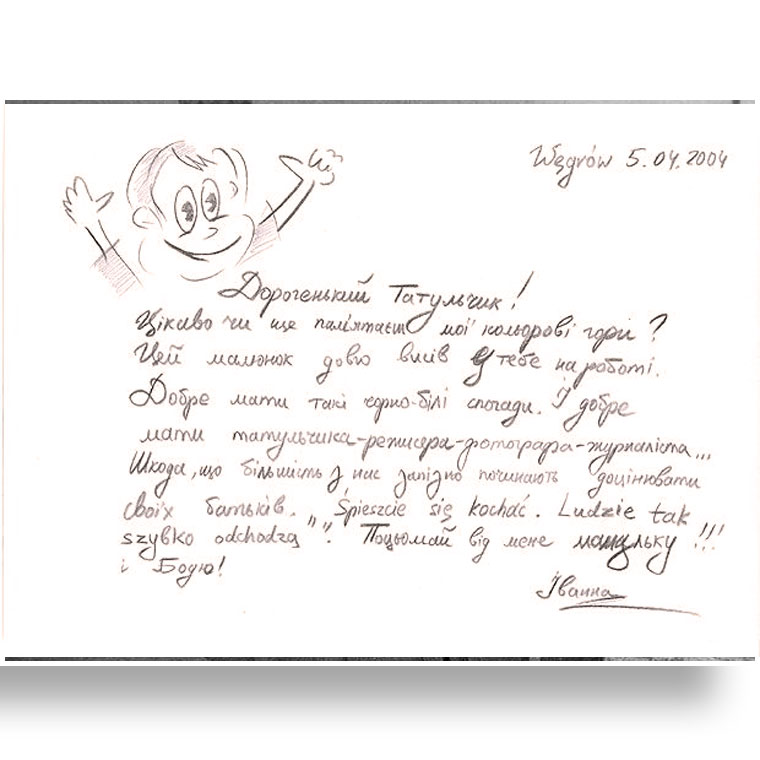 Węgrów 5.04.2004
Дорогенький Татульчик!
Цікаво чи ще пам'ятаєш мої кольорові гори?
Цей малюнок довго висів у тебе на роботі.
Добре мати такі чорно-білі спогади. І добре
мати татульчика-режисера-фотографа-журналіста...
Шкода, що більшість з нас запізно починають доцінювати
своїх батьків. „Śpieszcie się kochać. Ludzie tak
szybko odchodzą". Поцьомай від мене мамульку !!!
і Бодю!
Іванна